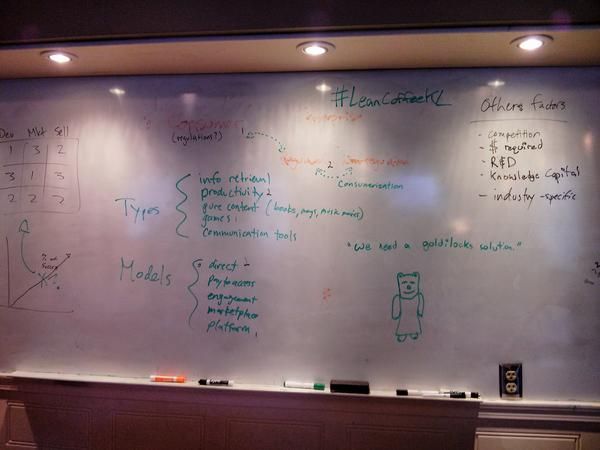 #LeanCoffeeKL
Consumer
(regulations?)
enterprise
2
Consumerization
Dev Mkt Sell
1 3 2
3 1 3
2 2 2
Types
info retrieval
productivity 2
pure content (books, mags, music, movies)
games 1
communication tools
Models
direct
pay to access
engagement
marketplace
platform 1
"We need a goldilocks solution."
Others factors
- competition
- $ required
- R&D
- Knowledge Capital
- industry-specific